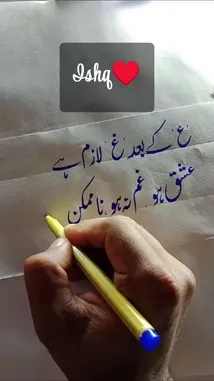 Ishq❤️
ع کے بعد غ لازم ہے
عشق ہو غم نہ ہو ناممکن